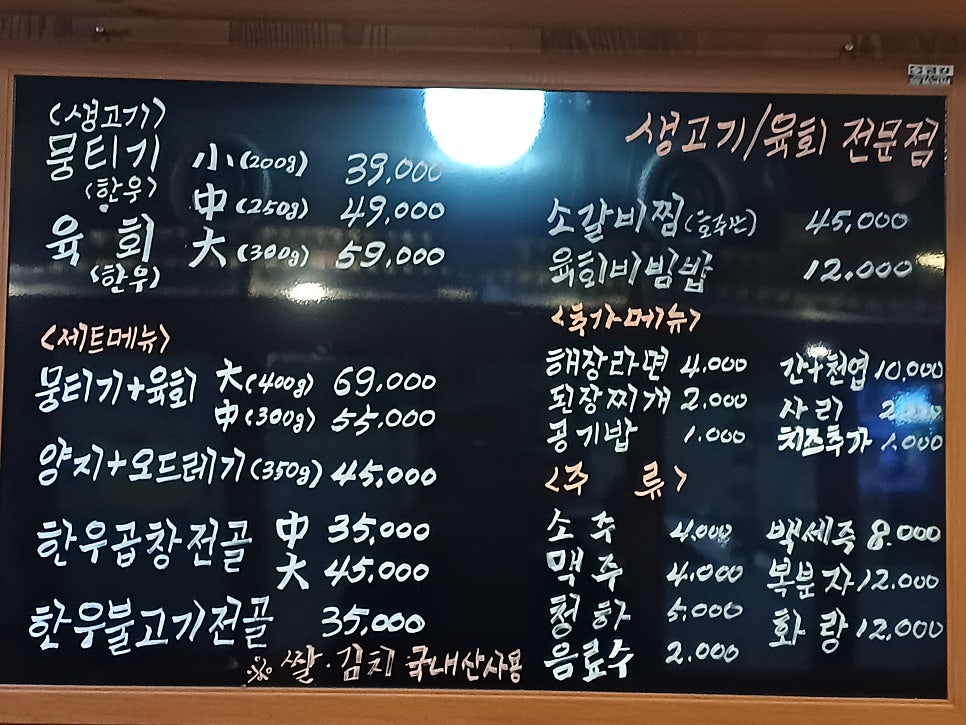 <생고기>
뭉티기 小(200g) 39,000
(한우) 中(250g) 49,000
육 회 大(300g) 59,000
(한우)
<세트메뉴>
뭉티기+육회 大(400g) 69,000
中(300g) 55,000
양지+오드레기(350g) 45,000
한우곱창전골 中 35,000
大 45,000
한우불고기전골 35,000
※ 쌀·김치 국내산사용
생고기/육회 전문점
소갈비찜(호주산) 45,000
육회비빔밥 12.000
<추가메뉴>
해장라면 4.000 간+천엽 10,000
된장찌개 2,000 사리 2,000
공기밥 1.000 치즈추가 1,000
<주 류>
소 주 4.000 백세주 8.000
맥 주 4.000 복분자 12.000
청 하 5,000 화 랑 12,000
음료수 2.000